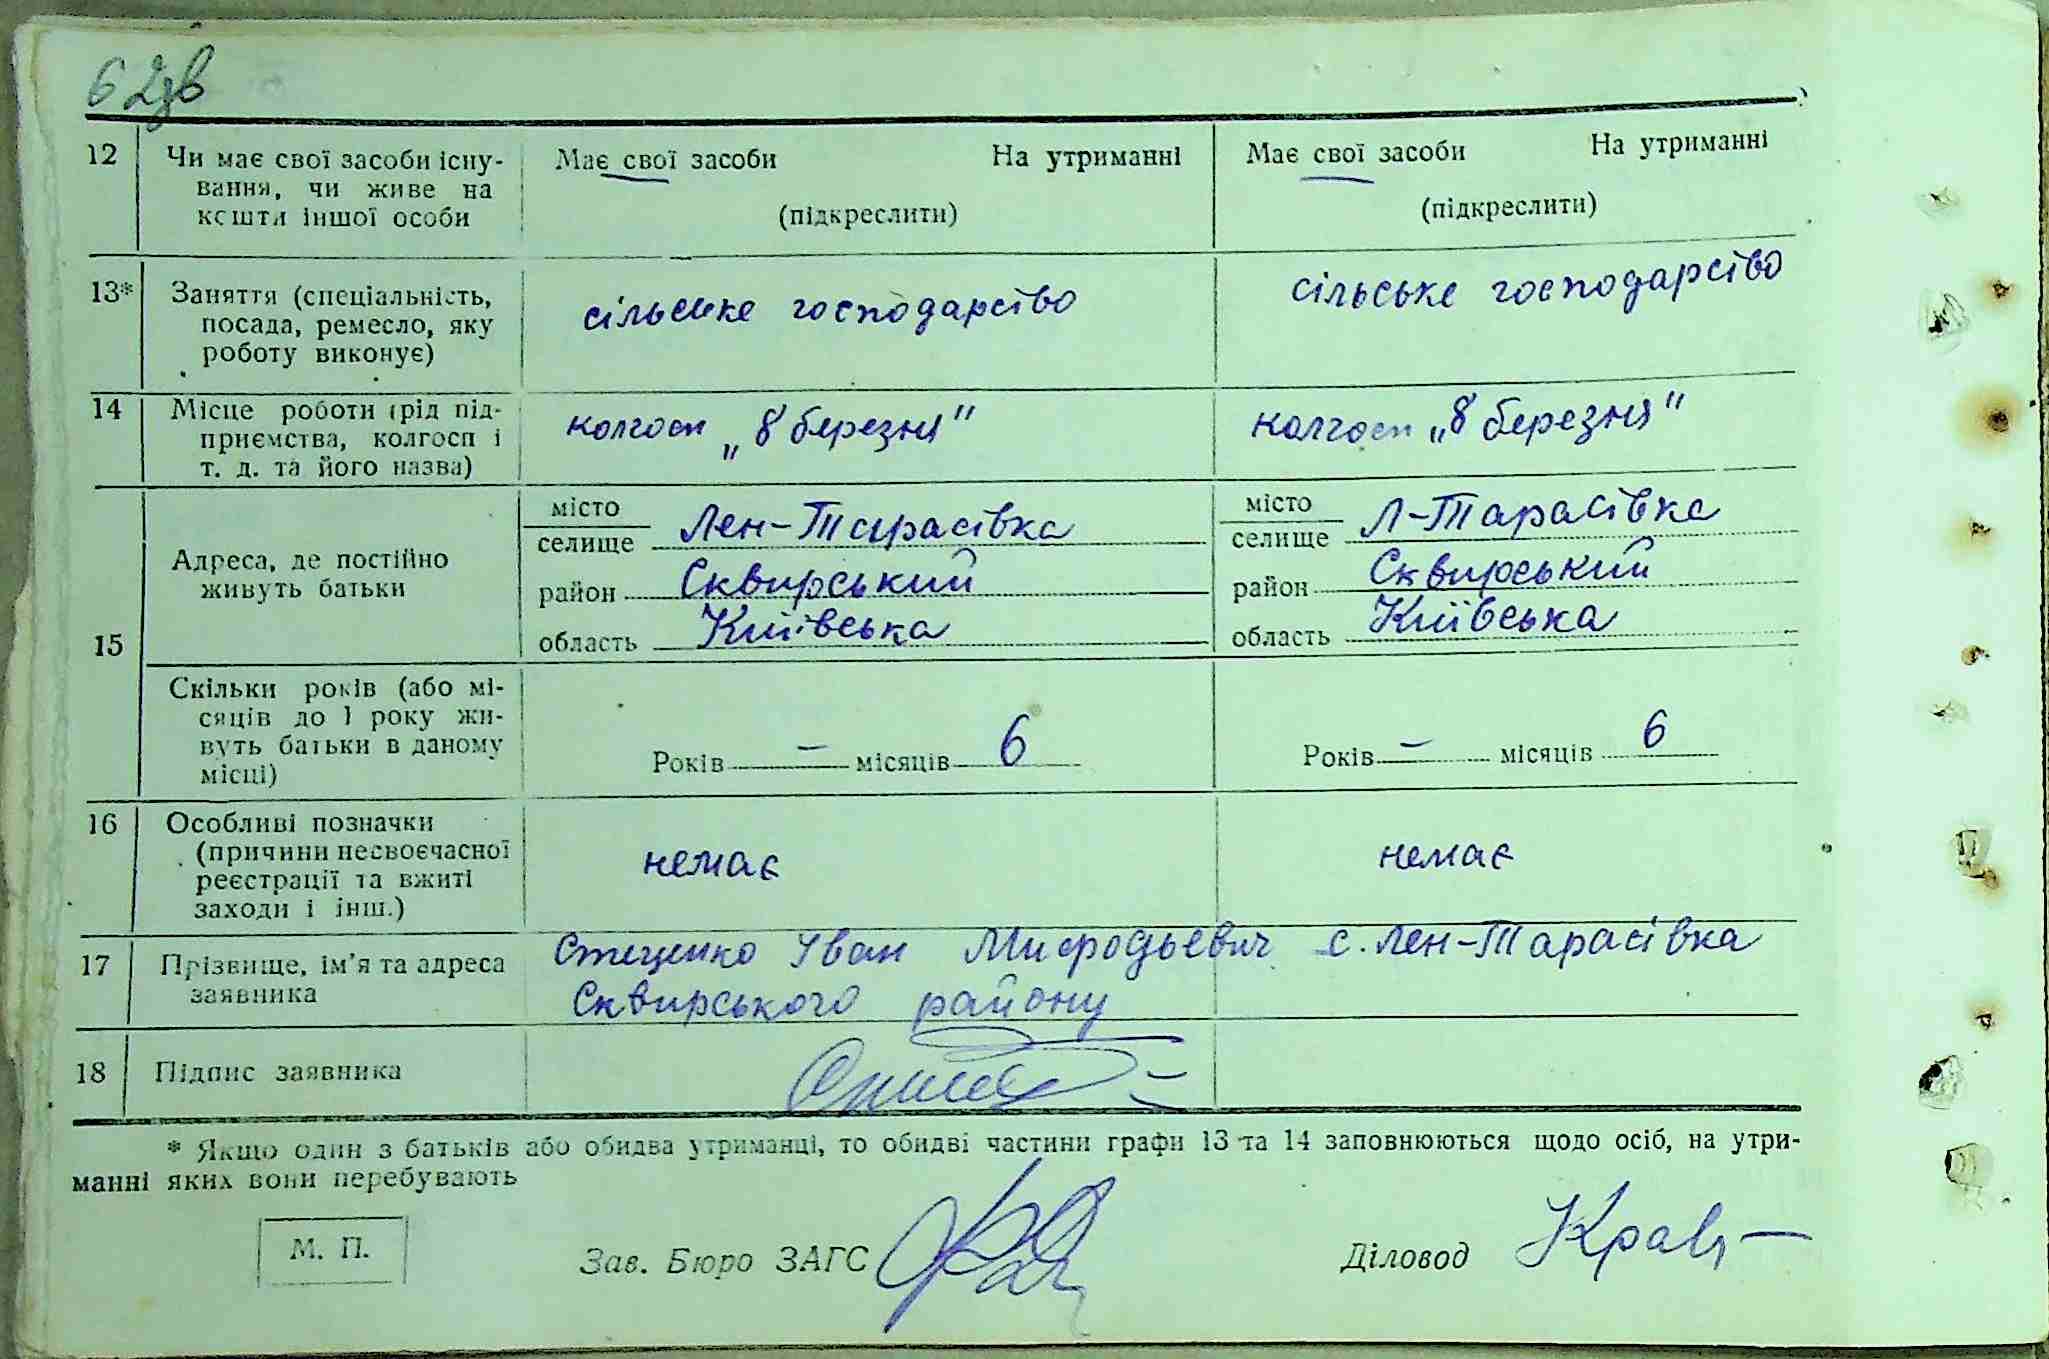 62зв
12 Чи має свої засоби існу- Має свої засоби На утриманні Має свої засоби На утриманні
вання, чи живе на
кошти іншої особи (підкреслити) (підкреслити)
13* Заняття (спеціальність, сільське господарство сільське господарство
посада, ремесло, яку
роботу виконує)
14 Місце роботи (рід під- колгосп „8 березня" колгосп „8 березня"
приємства, колгосп і
т. д. та його назва)
15 Адреса, де постійно
живуть батьки
місто
селище Лен-Тарасівка
район Сквирський
область Київська
місто
селище Л-Тарасівка
район Сквирський
область Київська
Скільки років (або мі-
сяців до 1 року жи-
вуть батьки в даному
місці)
Років – місяців 6 Років – місяців 6
16 Особливі позначки
(причини несвоєчасної немає немає
реєстрації та вжиті
заходи і інш.)
17 Прізвище, ім'я та адреса Стеценко Іван Мифодьевич с. Лен-Тарасівка
заявника Сквирського району
18 Підпис заявника
* Якщо один з батьків або обидва утриманці, то обидві частини графи 13 та 14 заповнюються щодо осіб, на утри-
манні яких вони перебувають
М. П. Зав. Бюро ЗАГС Діловод Кравц